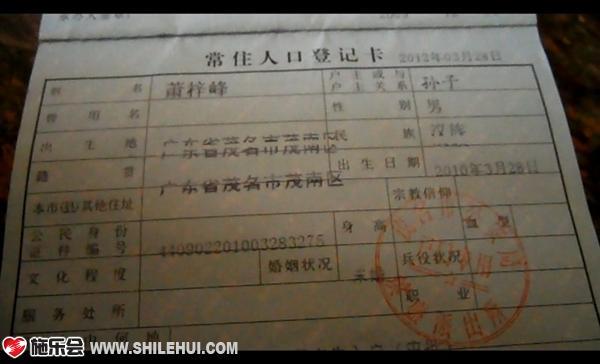 常住人口登记卡 2012年03月28日
姓 名 萧梓峰 户主或与户主关系 孙子
曾用名 性别 男
出生地 广东省茂名市茂南区 民族 汉族
籍贯 广东省茂名市茂南区 出生日期 2010年3月28日
本市(县)其他住址 宗教信仰
公民身份证件编号 440902201003283275 身高 血型
文化程度 婚姻状况 未婚 兵役状况
服务处所 职业
施乐会 WWW.SHILEHUI.COM